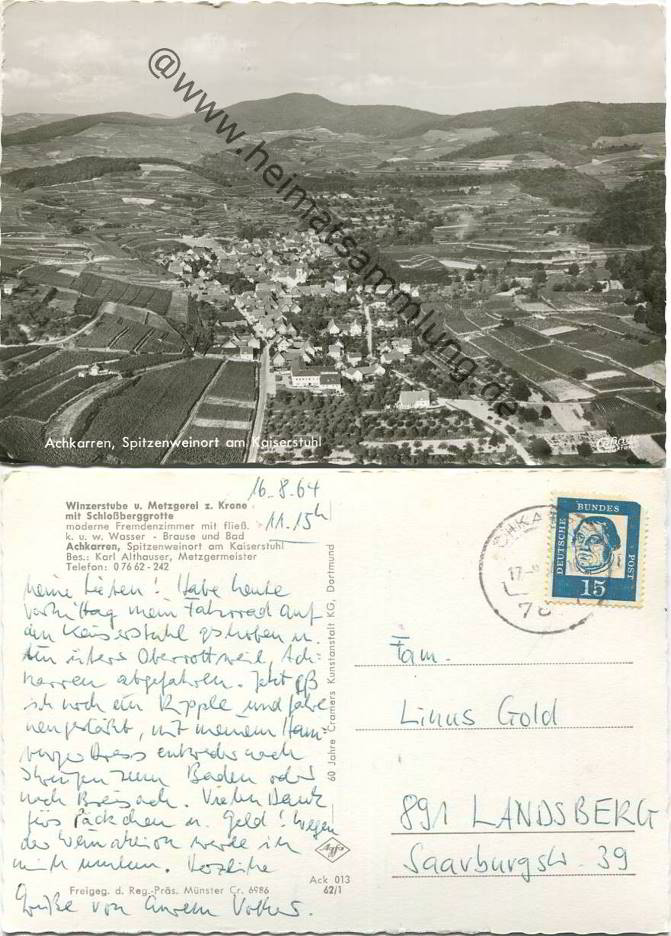 @www.heimatsammlung.de
Achkarren, Spitzenweinort am Kaiserstuhl
Winzerstube u. Metzgerei z. Krone
mit Schloßberggrotte
moderne Fremdenzimmer mit fließ.
k. u. w. Wasser - Brause und Bad
Achkarren, Spitzenweinort am Kaiserstuhl
Bes.: Karl Althauser, Metzgermeister
Telefon: 0 76 62 - 242
16.8.64
11.15h
Meine Lieben! Habe heute
vormittag mein Fahrrad auf
den Kaiserstuhl geschoben u.
bin übers Oberrottweil, Ach-
karren abgefahren. Jetzt eß
ich noch ein Ripple und fahre
neugestärkt, mit meinem Ham-
burger Dress entweder nach
zum Baden oder
nach Breisach. Vielen Dank
fürs Päckchen u. Geld! Wegen
der werde ich
mich umtun. Herzliche
Grüße von Eurem Volker.
Freigeg. d. Reg.-Präs. Münster Cr. 6986
60 Jahre Cramers Kunstanstalt KG, Dortmund
Agfa
Ack 013
62/1
DEUTSCHE BUNDES POST
15
17.-8
78
Fam.
Linus Gold
891 LANDSBERG
Saarburgstr. 39